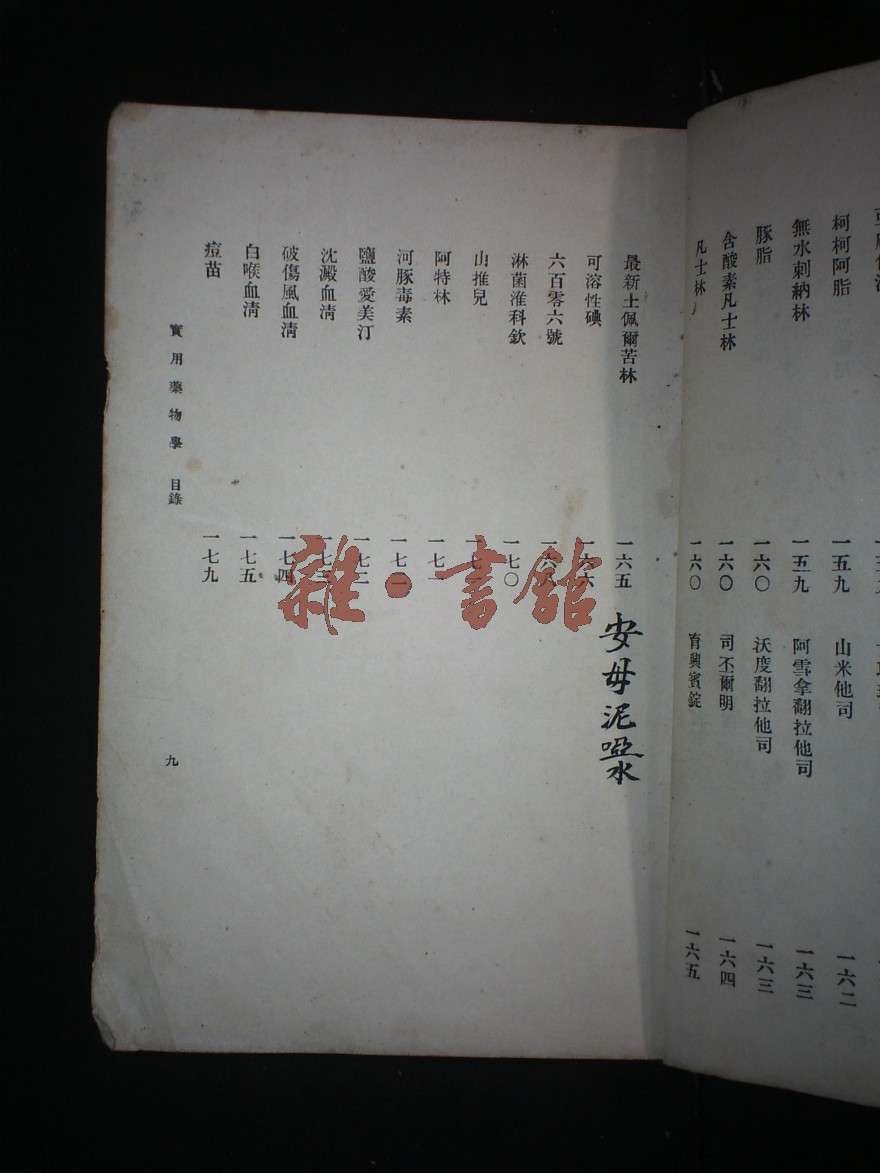 柯柯阿脂 一五九
無水刺納林 一五九
豚脂 一六〇
含酸素凡士林 一六〇
凡士林 一六〇
山米他司 一六二
阿雪拿翻拉他司 一六三
沃度翻拉他司 一六三
司丕爾明 一六四
育興賓錠 一六五
最新土佩爾苦林 一六五
可溶性碘 一六六
六百零六號 一六八
淋菌滙科欽 一七〇
山推兒 一七一
阿特林 一七一
河豚毒素 一七一
鹽酸愛美汀 一七二
沈澱血清 一七三
破傷風血清 一七四
白喉血清 一七五
痘苗 一七九
安母泥啞水
實用藥物學 目錄
九
雜·書館